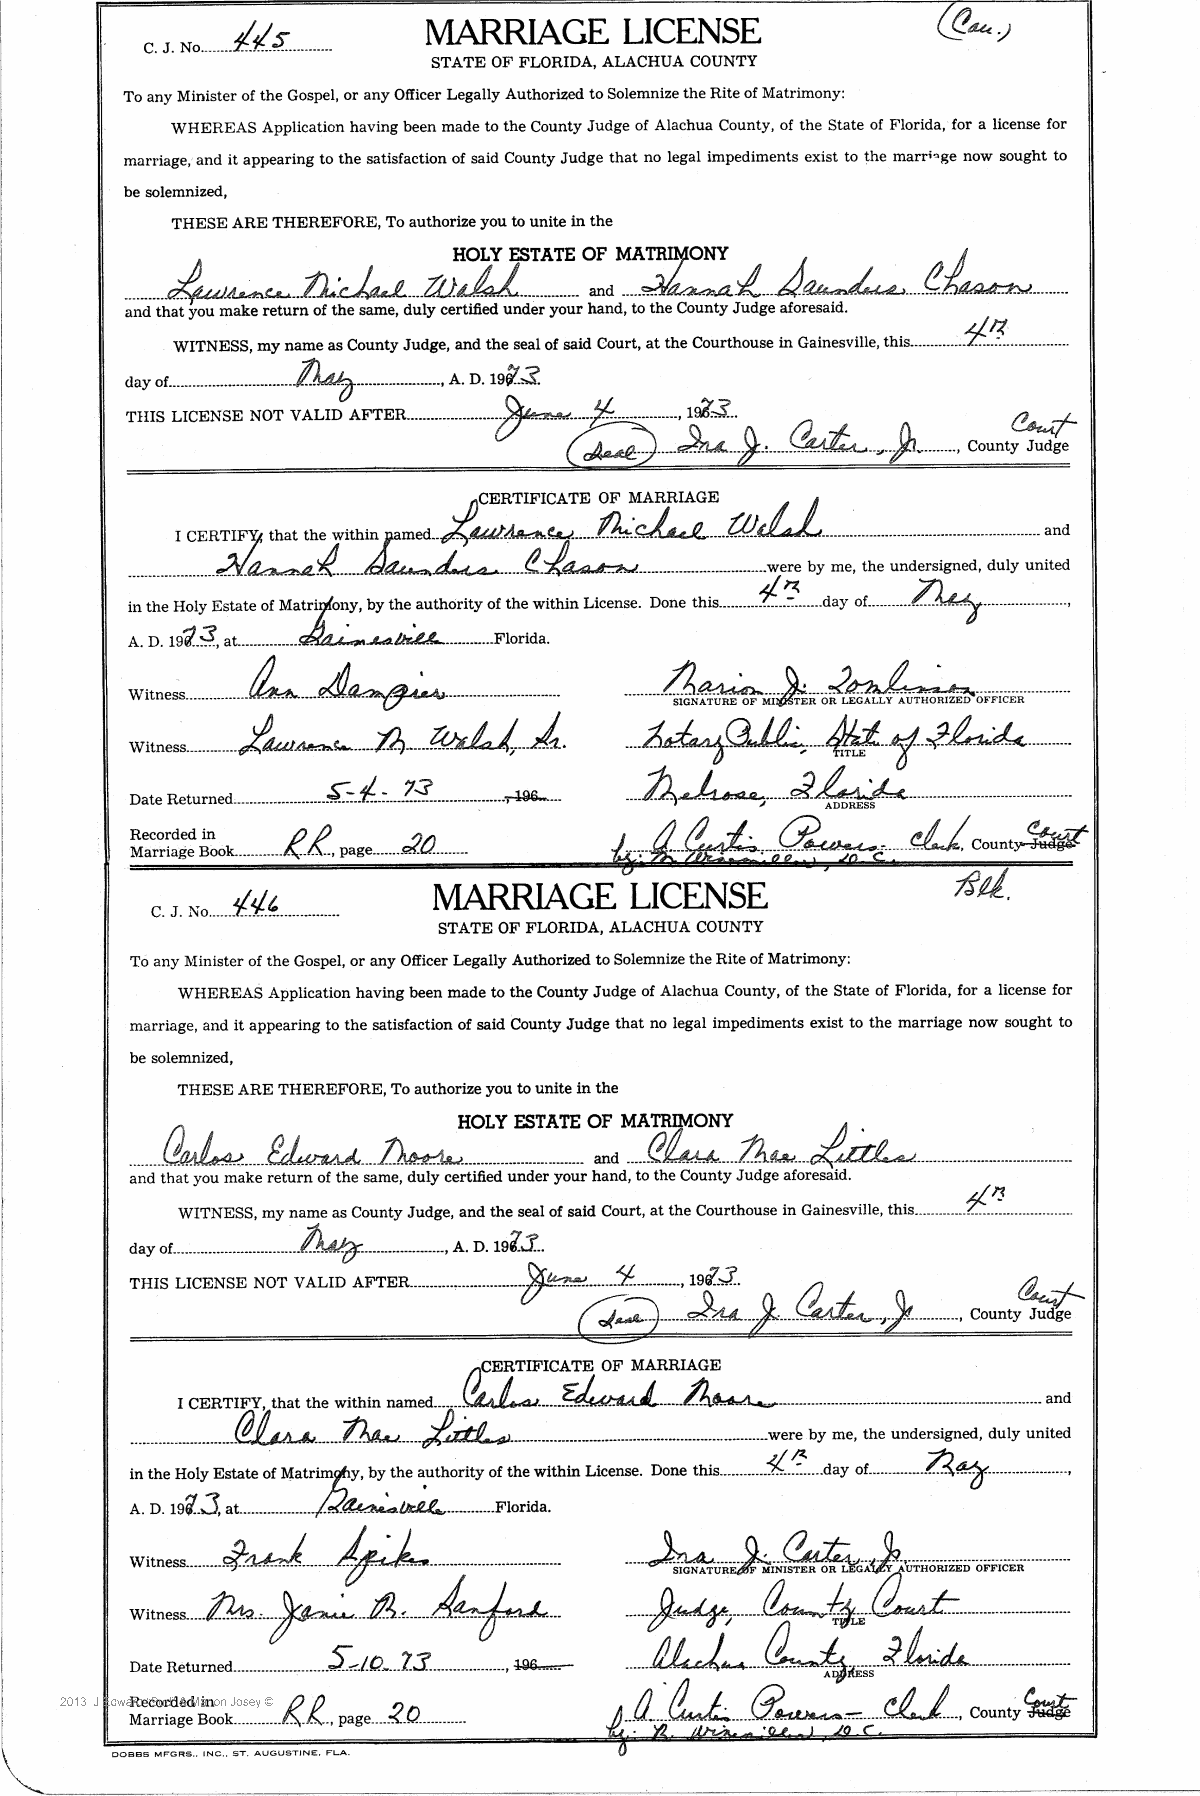 C. J. No. 445
MARRIAGE LICENSE
(Cau.)
STATE OF FLORIDA, ALACHUA COUNTY
To any Minister of the Gospel, or any Officer Legally Authorized to Solemnize the Rite of Matrimony:
WHEREAS Application having been made to the County Judge of Alachua County, of the State of Florida, for a license for
marriage, and it appearing to the satisfaction of said County Judge that no legal impediments exist to the marriage now sought to
be solemnized,
THESE ARE THEREFORE, To authorize you to unite in the
HOLY ESTATE OF MATRIMONY
Lawrence Michael Walsh and Hannah Saunders Chason
and that you make return of the same, duly certified under your hand, to the County Judge aforesaid.
WITNESS, my name as County Judge, and the seal of said Court, at the Courthouse in Gainesville, this 4th
day of May, A. D. 1973.
THIS LICENSE NOT VALID AFTER June 4, 1973.
Court
(Seal) Ira J. Carter, Jr., County Judge
CERTIFICATE OF MARRIAGE
I CERTIFY, that the within named Lawrence Michael Walsh and
Hannah Saunders Chason were by me, the undersigned, duly united
in the Holy Estate of Matrimony, by the authority of the within License. Done this 4th day of May,
A. D. 1973, at Gainesville Florida.
Witness Ann Dampier Marion J. Tomlinson
SIGNATURE OF MINISTER OR LEGALLY AUTHORIZED OFFICER
Witness Lawrence M Walsh, Sr. Notary Public, State of Florida
TITLE
Date Returned 5-4-73, 196 Melrose, Florida
ADDRESS
Recorded in Court
Marriage Book RR, page 20 A Curtis Powers- Clerk, County Judge
by: D.C.
C. J. No. 446
MARRIAGE LICENSE
Blk.
STATE OF FLORIDA, ALACHUA COUNTY
To any Minister of the Gospel, or any Officer Legally Authorized to Solemnize the Rite of Matrimony:
WHEREAS Application having been made to the County Judge of Alachua County, of the State of Florida, for a license for
marriage, and it appearing to the satisfaction of said County Judge that no legal impediments exist to the marriage now sought to
be solemnized,
THESE ARE THEREFORE, To authorize you to unite in the
HOLY ESTATE OF MATRIMONY
Carlos Edward Moore and Clara Mae Littles
and that you make return of the same, duly certified under your hand, to the County Judge aforesaid.
WITNESS, my name as County Judge, and the seal of said Court, at the Courthouse in Gainesville, this 4th
day of May, A. D. 1973.
THIS LICENSE NOT VALID AFTER June 4, 1973.
Court
(Seal) Ira J. Carter, Jr, County Judge
CERTIFICATE OF MARRIAGE
I CERTIFY, that the within named Carlos Edward Moore and
Clara Mae Littles were by me, the undersigned, duly united
in the Holy Estate of Matrimony, by the authority of the within License. Done this 4th day of May,
A. D. 1973, at Gainesville Florida.
Witness Frank Spikes Ira J. Carter, Jr.
SIGNATURE OF MINISTER OR LEGALLY AUTHORIZED OFFICER
Witness Mrs. Janie B. Sanford Judge, County Court
TITLE
Date Returned 5-10-73, 196 Alachua County, Florida
ADDRESS
Recorded in Court
Marriage Book RR, page 20 A Curtis Powers- Clerk, County Judge
by: D.C.
2013 Josey ©
DOBBS MFGRS., INC., ST. AUGUSTINE, FLA.